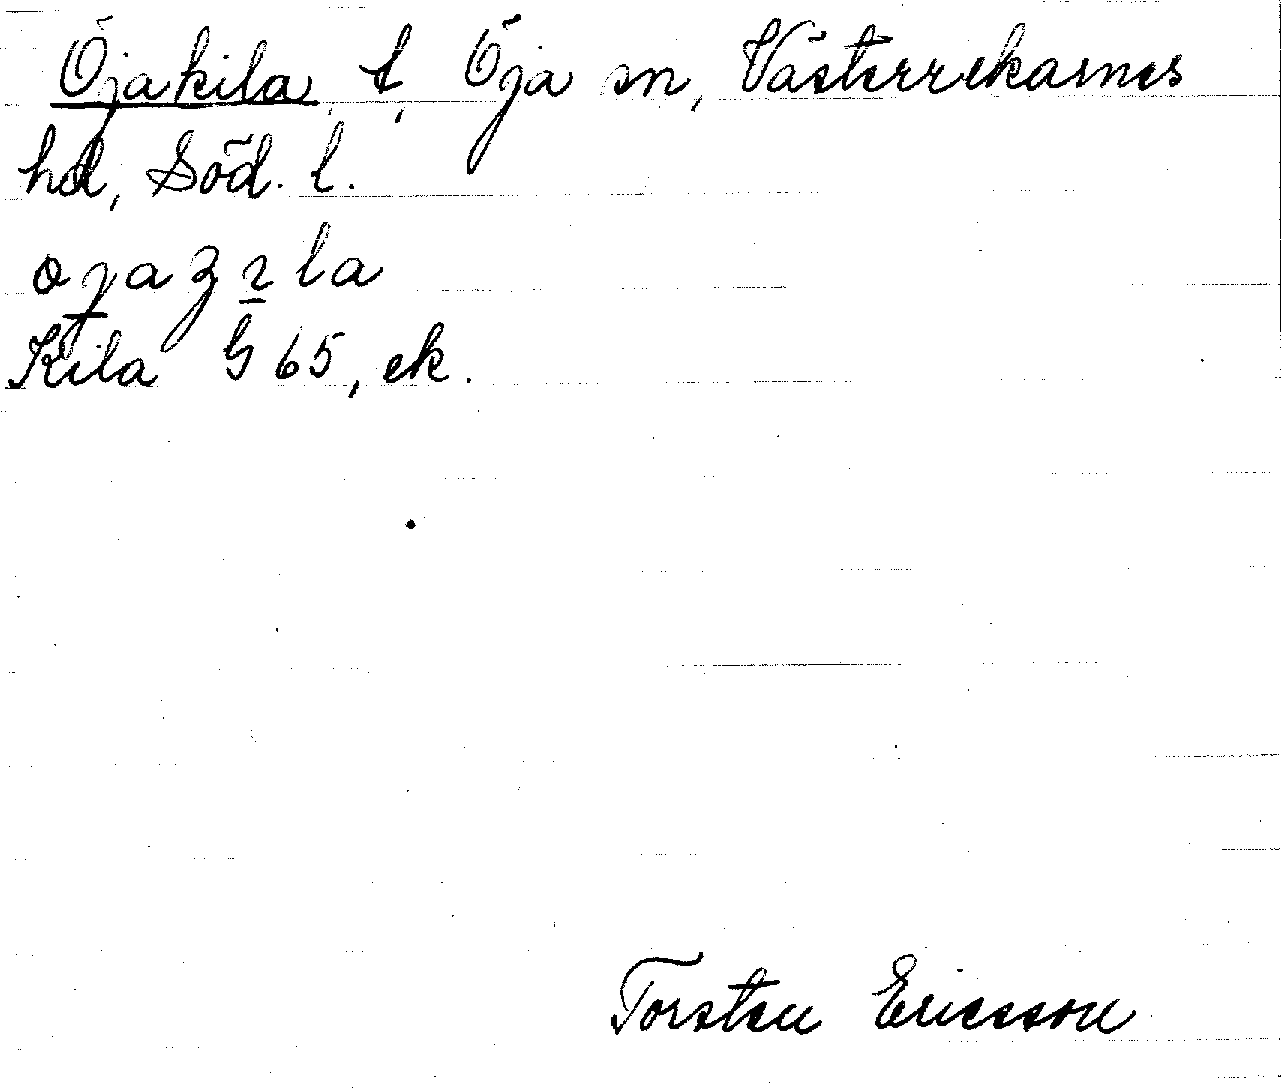 Öjakila, t, Öja sn, Västerrekarnes
hd, Söd. l.
Kila G 65, ek.
Torsten Ericsson